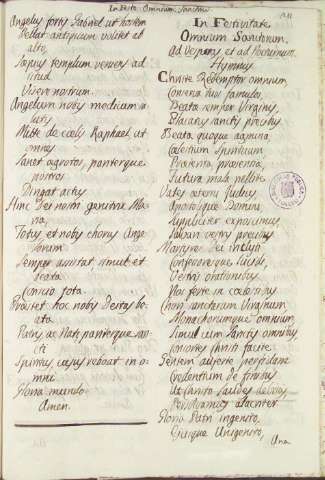 In Festo Omnium Sanctorum
Angelus fortis Gabriel ut hostem
Pellat antiquum volitet ab
alto
Sæpius templum veniens ad
istud
Visere nostrum.
Angelum nobis medicum sa
lutis
Mitte de cælis Raphael ut
omnes
Sanet ægrotos pariterque
nostros
Dirigat actus
Hinc Dei nostri genitrix Ma
ria,
Totus et nobis chorus Ange
lorum
Semper assistat simul et
beata
Concio tota.
Præstet hoc nobis Deitas be
ata
Patris ac Nati pariterque san
cti
Spiritus cujus reboat in o
mni
Gloria mundo.
Amen.
In Festivitate
Omnium Sanctorum.
Ad Vesperas et ad Nocturnum
Hymnus
Christe Redemptor omnium
Conserva tuos famulos,
Beatæ semper Virginis,
Placatus sanctis precibus
Beata quoque agmina,
Cælestium Spirituum
Præterita, præsentia,
Futura mala pellite
Vates æterni Judicis
Apostolique Domini
Suppliciter exposcimus
Salvari vestris precibus
Martyres Dei inclyti
Confessoresque lucidi
Vestris orationibus
Nos ferte in cælestibus
Chori sanctarum Virginum
Monachorumque omnium
Simul cum Sanctis omnibus
Consortes Christi facite.
Gentem auferte perfidam
Credentium de finibus
Ut Christo laudes debitas
Persolvamus alacriter
Gloria Patri ingenito,
Ejusque Unigenito,
Una